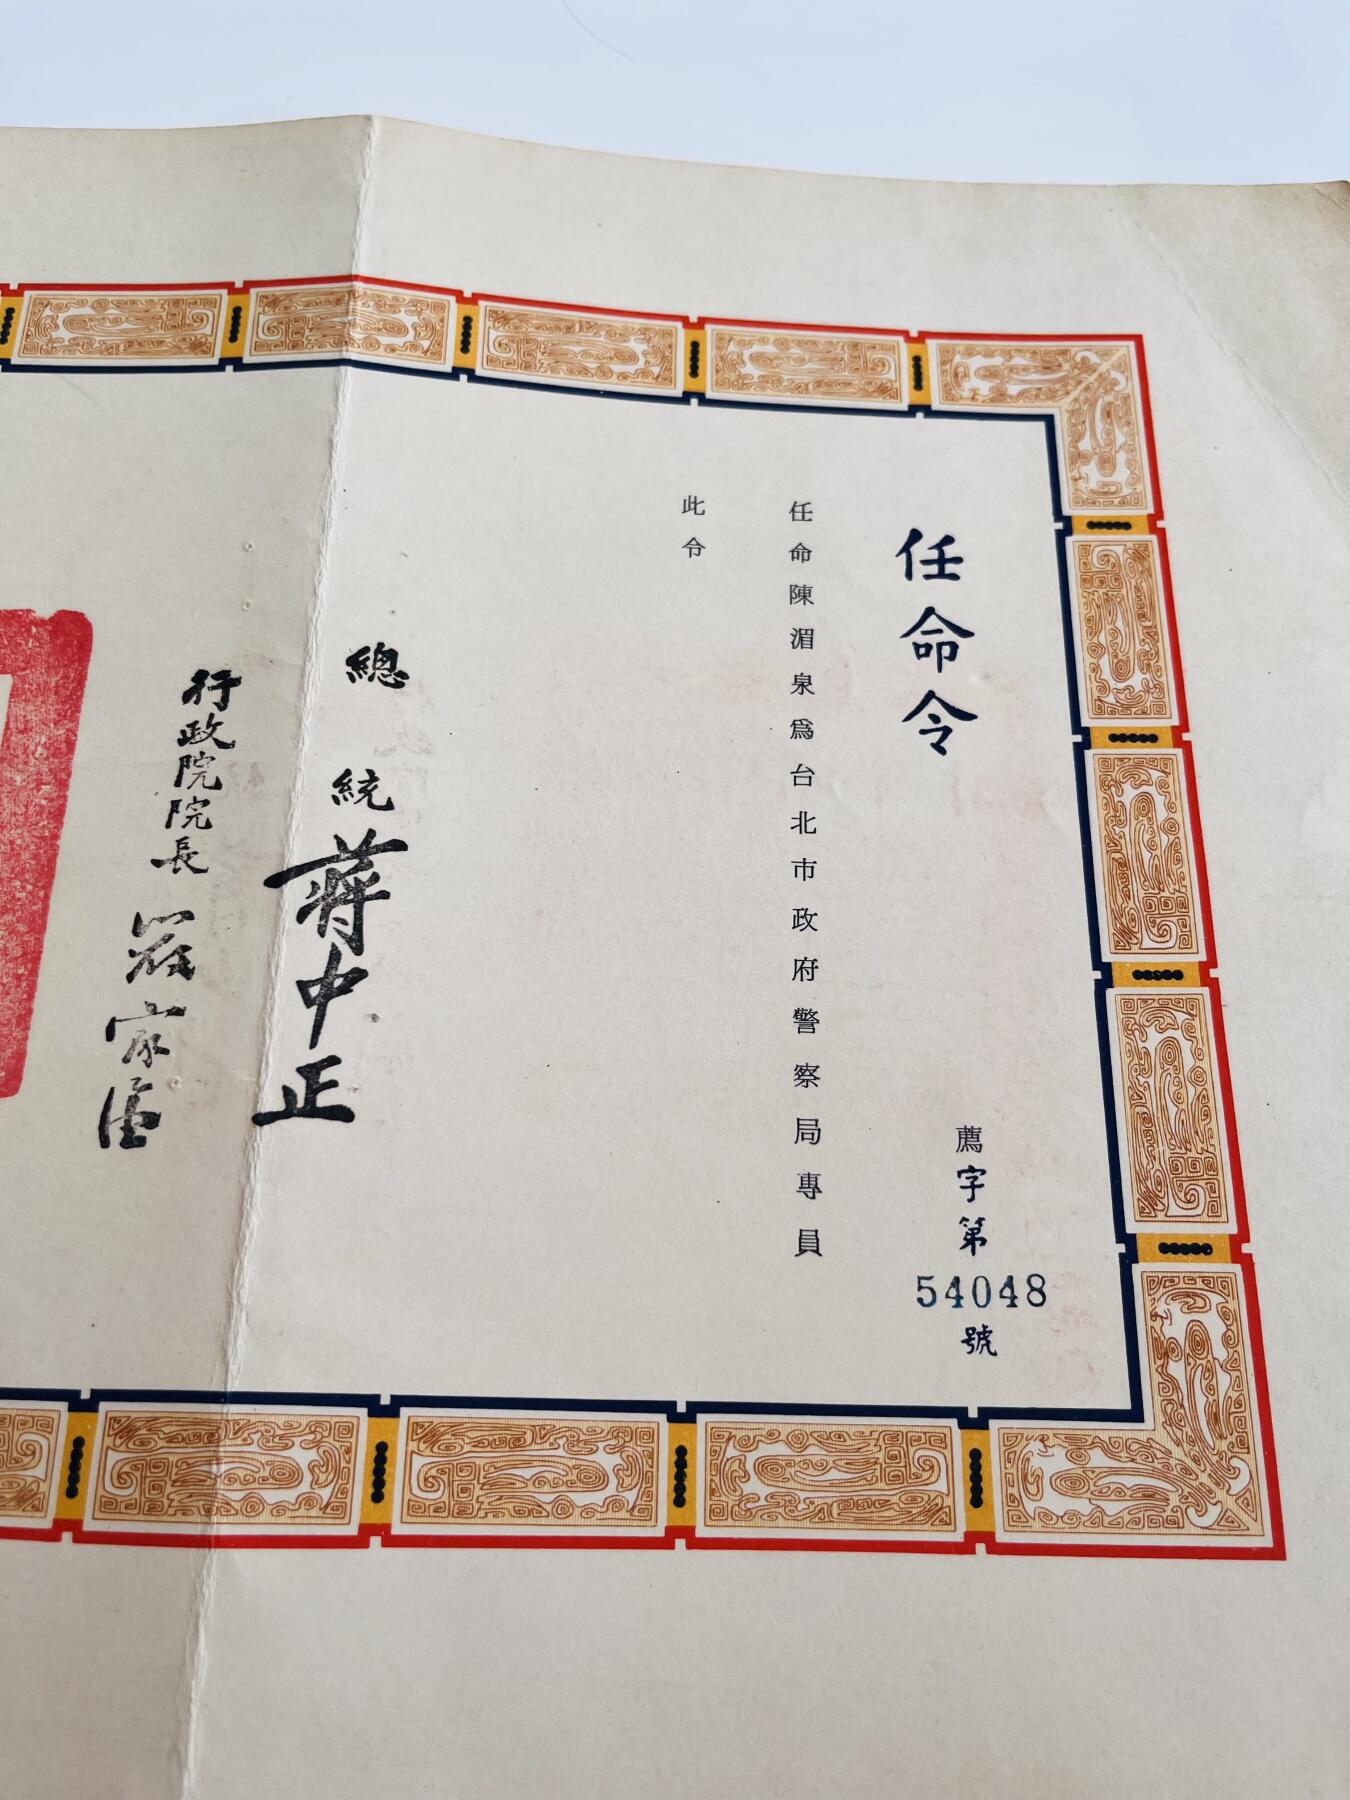 任命令
薦字第
54048
號
任命陳湄泉爲台北市政府警察局專員
此令
總統蔣中正
行政院院長嚴家淦